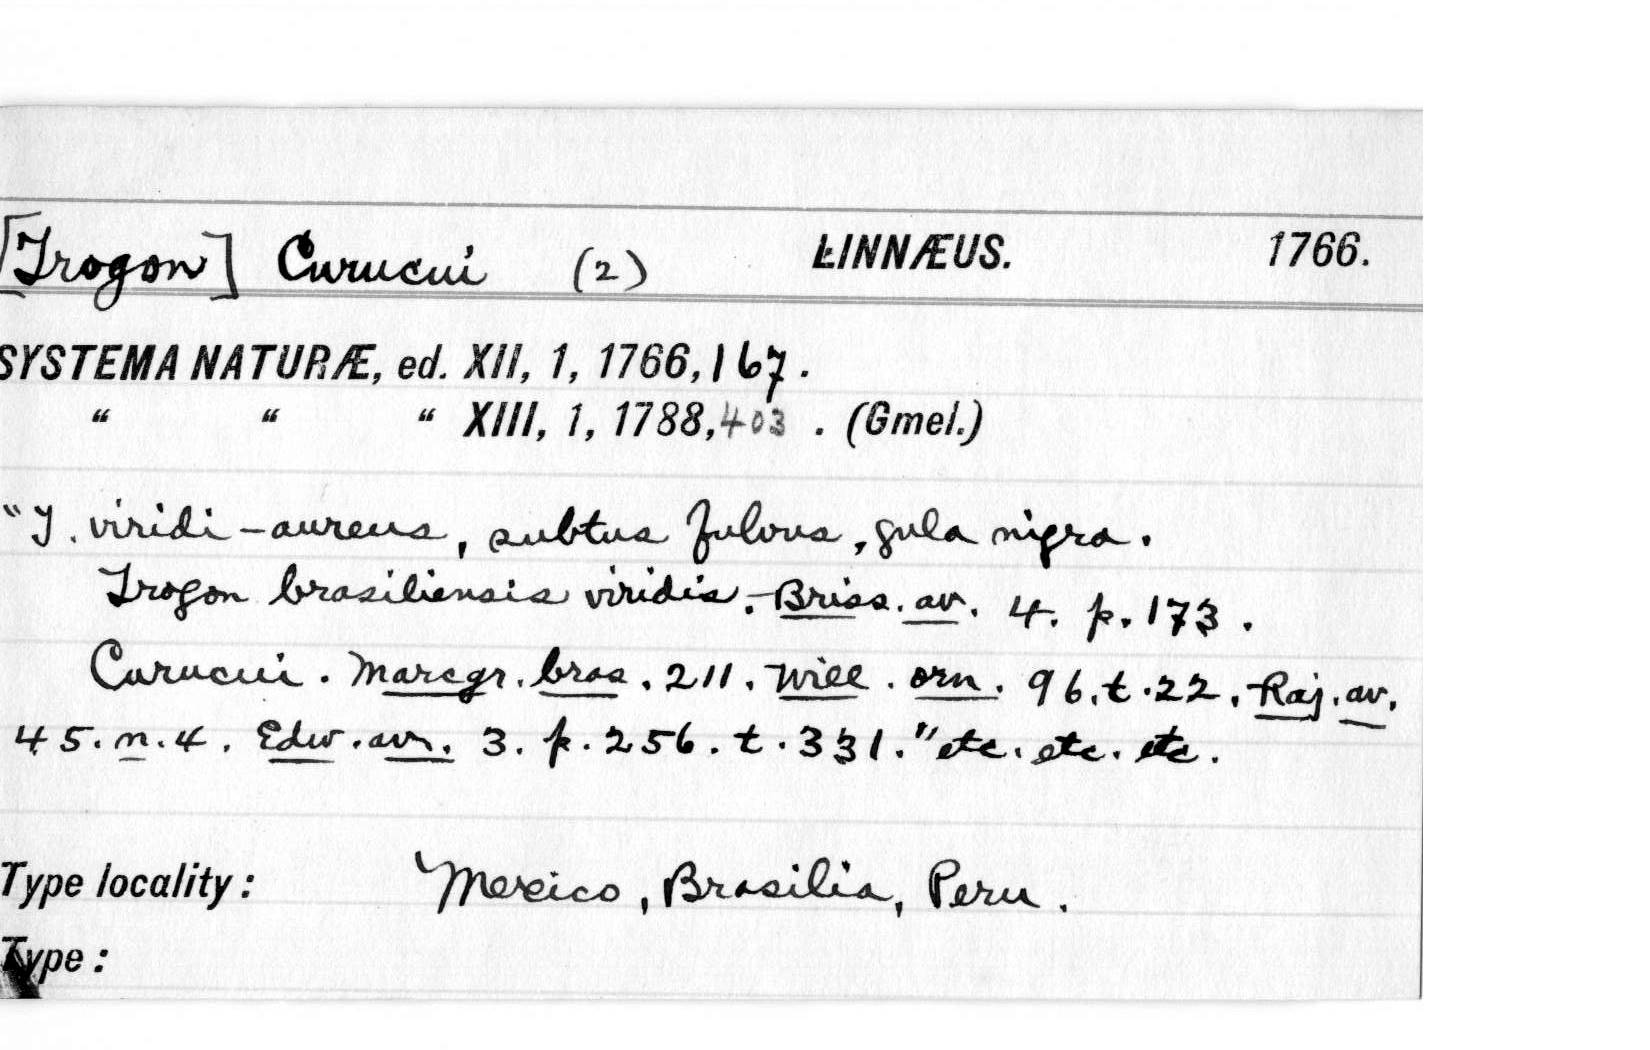 [Trogon] Curucui (2) LINNÆUS. 1766.
SYSTEMA NATURÆ, ed. XII, 1, 1766, 167.
“ “ “ XIII, 1, 1788, 403 . (Gmel.)
"T. viridi-aureus, subtus fulvus, gula nigra.
Trogon brasiliensis viridis. Briss. av. 4. p. 173.
Curucui. Marcgr. bras. 211. Will. orn. 96. t. 22. Raj. av.
45. n. 4. Edw. av. 3. p. 256. t. 331." etc. etc. etc.
Type locality: Mexico, Brasilia, Peru.
Type: